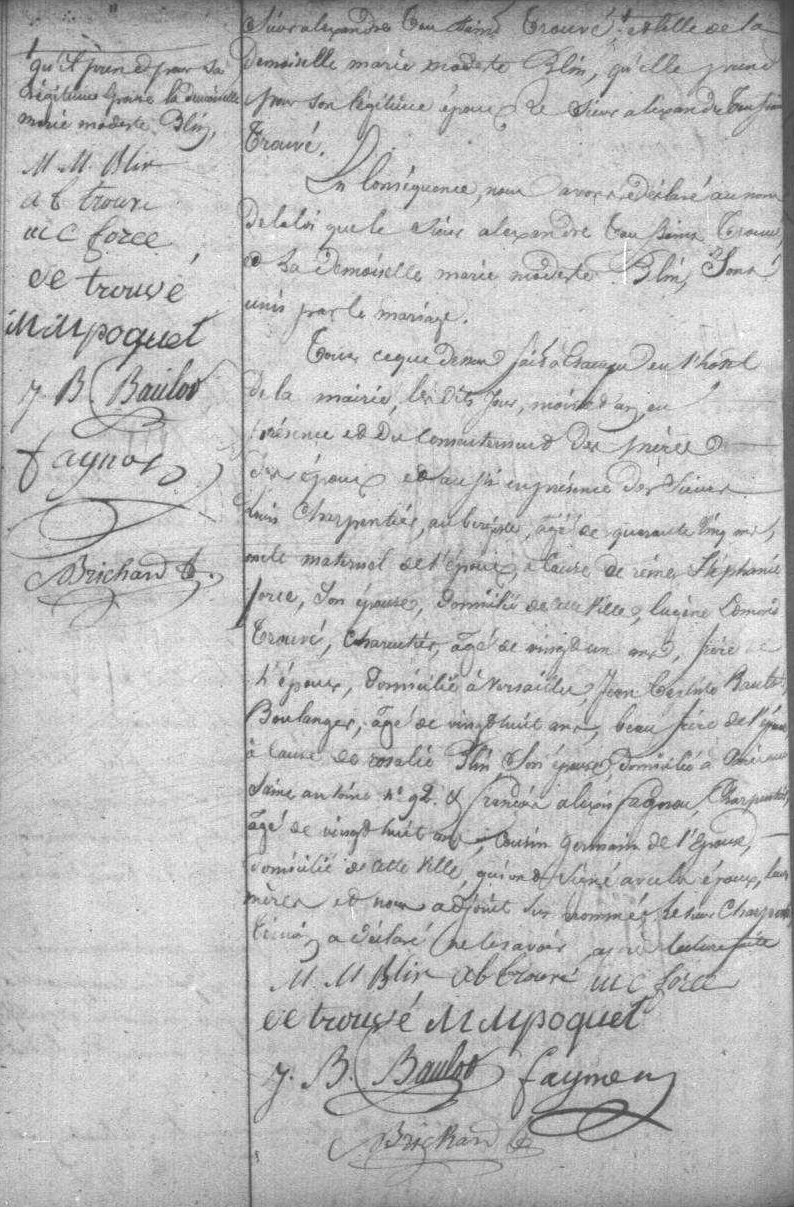 qu'il prend pour sa
légitime épouse la demoiselle
marie modeste Blin,
M M Blin
a t trouvé
m c force
de trouvé
M M poquet
J. B. Baulot
fagnou
Brichard
Sieur alexandre Toussaint Trouvé, et celle de la
Demoiselle marie modeste Blin, qu'elle prend
pour son légitime époux le Sieur alexandre Toussaint
Trouvé.
En Conséquence, nous avons déclaré au nom
De la loi que le Sieur alexandre Toussaint Trouvé
et La Demoiselle marie modeste Blin, Sont
unis par le mariage.
Tout ce que dessus fait à en l'hôtel
De la mairie, les dits jour, mois et an, en
présence et Du Consentement Des mères
Des époux et aussi en présence des Sieurs
Louis Charpentier, aubergiste, âgé de quarante cinq ans,
oncle maternel de l'époux, à Cause de Stéphanie
force, Son épouse, Domicilié de cette Ville, Eugène
Trouvé, Charcutier, âgé de vingt un ans, frère de
L'époux, Domicilié à Versailles, Jean Baulot,
Boulanger, âgé de vingt huit ans, beau frère de l'épouse
à Cause de rosalie Blin Son épouse, Domicilié à Paris rue
Saint antoine n° 92. & françois alexis fagnou, Charpentier,
âgé de vingt huit ans, Cousin Germain de l'époux,
Domicilié de cette Ville, qui ont Signé avec les époux, leurs
mères et nous adjoint Sus nommé, Le Sieur Charpentier,
témoin, a Déclaré ne le savoir, après lecture faite
M. M Blin a t trouvé m c force
de trouvé M M poquet
J. B. Baulot fagnou
Brichard